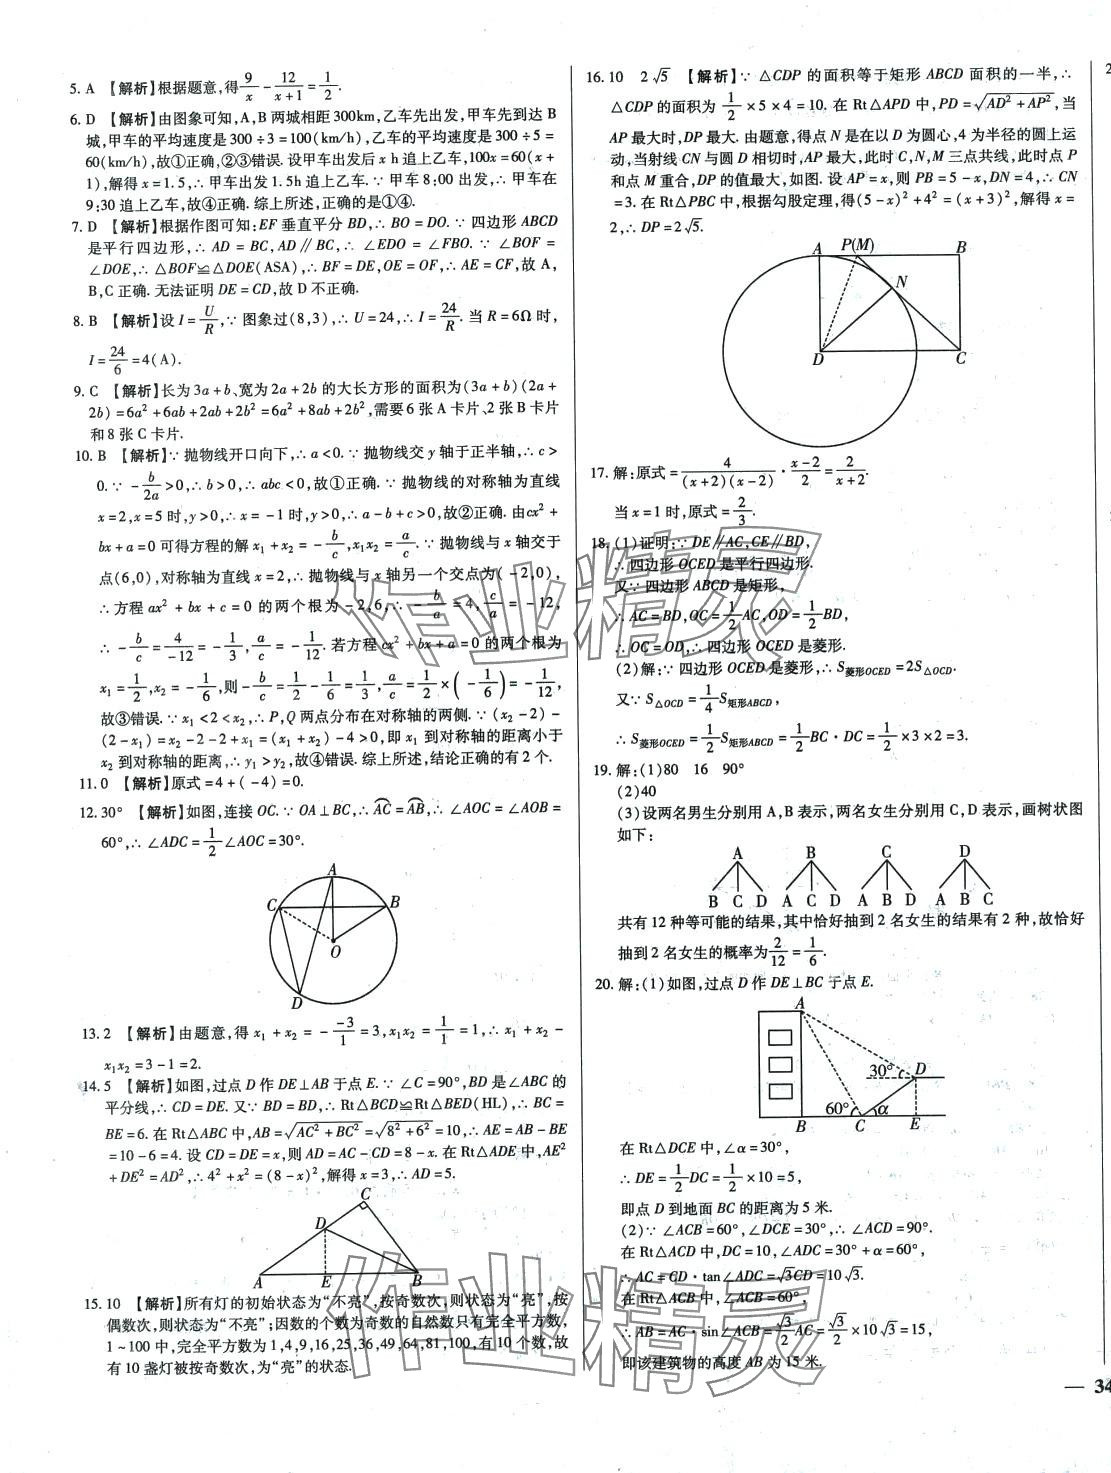 5. A 【解析】根据题意,得9/x－12/(x+1)＝1/2.
6. D 【解析】由图象可知,A,B两城相距300km,乙车先出发,甲车先到达B
城,甲车的平均速度是300÷3=100(km/h),乙车的平均速度是300÷5=
60(km/h),故①正确,②③错误. 设甲车出发后x h追上乙车,100x=60(x+
1),解得x=1.5,∴甲车出发1.5h追上乙车.∵甲车8:00出发,∴甲车在
9:30追上乙车,故④正确. 综上所述,正确的是①④.
7. D 【解析】根据作图可知:EF垂直平分BD,∴BO=DO.∵四边形ABCD
是平行四边形,∴AD=BC,AD∥BC,∴∠EDO=∠FBO.∵∠BOF=
∠DOE,∴△BOF≌△DOE(ASA),∴BF=DE,OE=OF,∴AE=CF,故A,
B,C正确. 无法证明DE=CD,故D不正确.
8. B 【解析】设I=U/R,∵图象过(8,3),∴U=24,∴I=24/R. 当R=6Ω时,
I=24/6=4(A).
9. C 【解析】长为3a+b、宽为2a+2b的大长方形的面积为(3a+b)(2a+
2b)=6a²+6ab+2ab+2b²=6a²+8ab+2b²,需要6张A卡片、2张B卡片
和8张C卡片.
10. B 【解析】∵抛物线开口向下,∴a<0.∵抛物线交y轴于正半轴,∴c>
0.∵－b/2a>0,∴b>0,∴abc<0,故①正确.∵抛物线的对称轴为直线
x=2,x=5时,y>0,∴x=－1时,y>0,∴a－b+c>0,故②正确. 由cx²+
bx+a=0可得方程的解x₁+x₂=－b/c,x₁x₂=a/c.∵抛物线与x轴交于
点(6,0),对称轴为直线x=2,∴抛物线与x轴另一个交点为(－2,0),
∴方程ax²+bx+c=0的两个根为－2,6,∴－b/a=4,c/a=－12,
∴－b/c=4/－12=－1/3,a/c=－1/12. 若方程cx²+bx+a=0的两个根为
x₁=1/2,x₂=－1/6,则－b/c=1/2－1/6=1/3,a/c=1/2×(－1/6)=－1/12,
故③错误.∵x₁<2<x₂,∴P,Q两点分布在对称轴的两侧.∵(x₂－2)－
(2－x₁)=x₂－2－2+x₁=(x₁+x₂)－4>0,即x₁到对称轴的距离小于
x₂到对称轴的距离,∴y₁>y₂,故④错误. 综上所述,结论正确的有2个.
11. 0 【解析】原式=4+(－4)=0.
12. 30° 【解析】如图,连接OC.∵OA⊥BC,∴⌒AC=⌒AB,∴∠AOC=∠AOB=
60°,∴∠ADC=1/2∠AOC=30°.
A
C
B
O
D
13. 2 【解析】由题意,得x₁+x₂=－－3/1=3,x₁x₂=1/1=1,∴x₁+x₂－
x₁x₂=3－1=2.
14. 5 【解析】如图,过点D作DE⊥AB于点E.∵∠C=90°,BD是∠ABC的
平分线,∴CD=DE.又∵BD=BD,∴Rt△BCD≌Rt△BED(HL),∴BC=
BE=6. 在Rt△ABC中,AB=√(AC²+BC²)=√(8²+6²)=10,∴AE=AB－BE
=10－6=4. 设CD=DE=x,则AD=AC－CD=8－x. 在Rt△ADE中,AE²
+DE²=AD²,∴4²+x²=(8－x)²,解得x=3,∴AD=5.
C
D
A
E
B
15. 10 【解析】所有灯的初始状态为“不亮”,按奇数次,则状态为“亮”,按
偶数次,则状态为“不亮”;因数的个数为奇数的自然数只有完全平方数,
1~100中,完全平方数为1,4,9,16,25,36,49,64,81,100,有10个数,故
有10盏灯被按奇数次,为“亮”的状态.
16. 10 2√5 【解析】∵△CDP的面积等于矩形ABCD面积的一半,∴
△CDP的面积为1/2×5×4=10. 在Rt△APD中,PD=√(AD²+AP²),当
AP最大时,DP最大. 由题意,得点N是在以D为圆心,4为半径的圆上运
动,当射线CN与圆D相切时,AP最大,此时C,N,M三点共线,此时点P
和点M重合,DP的值最大,如图. 设AP=x,则PB=5－x,DN=4,∴CN
=3. 在Rt△PBC中,根据勾股定理,得(5－x)²+4²=(x+3)²,解得x=
2,∴DP=2√5.
A
P(M)
B
N
D
C
17. 解:原式=4/(x+2)(x－2)·(x－2)/2=2/(x+2).
当x=1时,原式=2/3.
18. (1)证明:∵DE∥AC,CE∥BD,
∴四边形OCED是平行四边形.
又∵四边形ABCD是矩形,
∴AC=BD,OC=1/2AC,OD=1/2BD,
∴OC=OD,∴四边形OCED是菱形.
(2)解:∵四边形OCED是菱形,∴S菱形OCED=2S△OCD.
又∵S△OCD=1/4S矩形ABCD,
∴S菱形OCED=1/2S矩形ABCD=1/2BC·DC=1/2×3×2=3.
19. 解:(1)80 16 90°
(2)40
(3)设两名男生分别用A,B表示,两名女生分别用C,D表示,画树状图
如下:
A B C D
B C D A C D A B D A B C
共有12种等可能的结果,其中恰好抽到2名女生的结果有2种,故恰好
抽到2名女生的概率为2/12=1/6.
20. 解:(1)如图,过点D作DE⊥BC于点E.
A
30°
D
60°
α
B
C
E
在Rt△DCE中,∠α=30°,
∴DE=1/2DC=1/2×10=5,
即点D到地面BC的距离为5米.
(2)∵∠ACB=60°,∠DCE=30°,∴∠ACD=90°.
在Rt△ACD中,DC=10,∠ADC=30°+α=60°,
∴AC=CD·tan∠ADC=√3CD=10√3.
在Rt△ABC中,∠ACB=60°,
∴AB=AC·sin∠ACB=√3/2AC=√3/2×10√3=15,
即该建筑物的高度AB为15米.
作业精灵
作业精灵
2
— 34